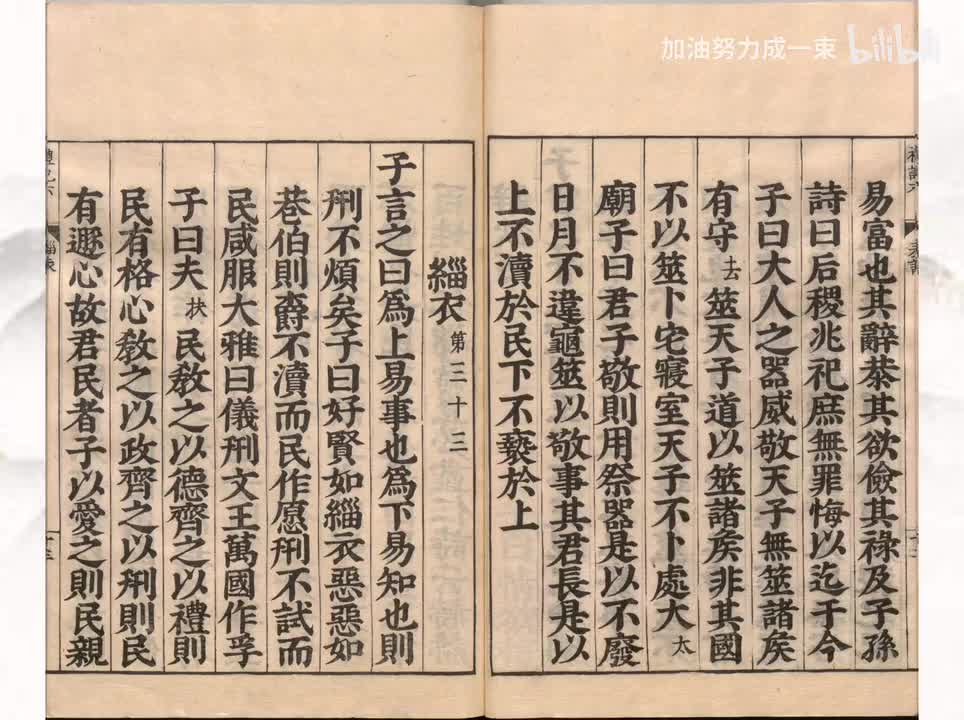 加油努力成一束 bilibili
易富也其辭恭其欲儉其祿及子孫
詩曰后稷兆祀庶無罪悔以迄于今
子曰大人之器威敬天子無筮諸矦
有守去筮天子道以筮諸矦非其國
不以筮卜宅寢室天子不卜處大太
廟子曰君子敬則用祭器是以不廢
日月不違龜筮以敬事其君長是以
上不瀆於民下不褻於上
緇衣第三十三
子言之曰爲上易事也爲下易知也則
刑不煩矣子曰好賢如緇衣惡惡如
巷伯則爵不瀆而民作愿刑不試而
民咸服大雅曰儀刑文王萬國作孚
子曰夫扶民教之以德齊之以禮則
民有格心教之以政齊之以刑則民
有遯心故君民者子以愛之則民親